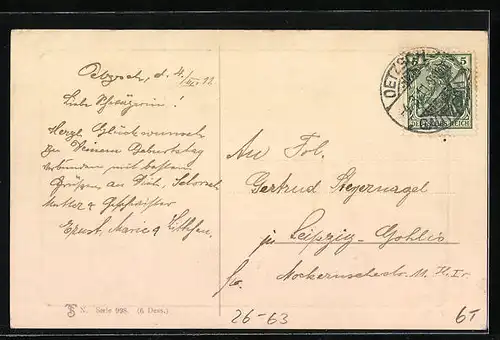 Oetzsch, d. 4/III. 12
Liebe Schwägerin!
Herzl. Glückwunsch
zu Deinem Geburtstag
verbunden mit besten
Grüßen an Dich,
Mutter & Geschwister
Ernst, Marie &
An Frl.
Gertrud Steyernagel
in Leipzig-Gohlis
Mockernschestr. 11. H. I.
OETZSCH
5
DEUTSCHES REICH
N. Serie 998. (6 Dess.)
26-63
6T